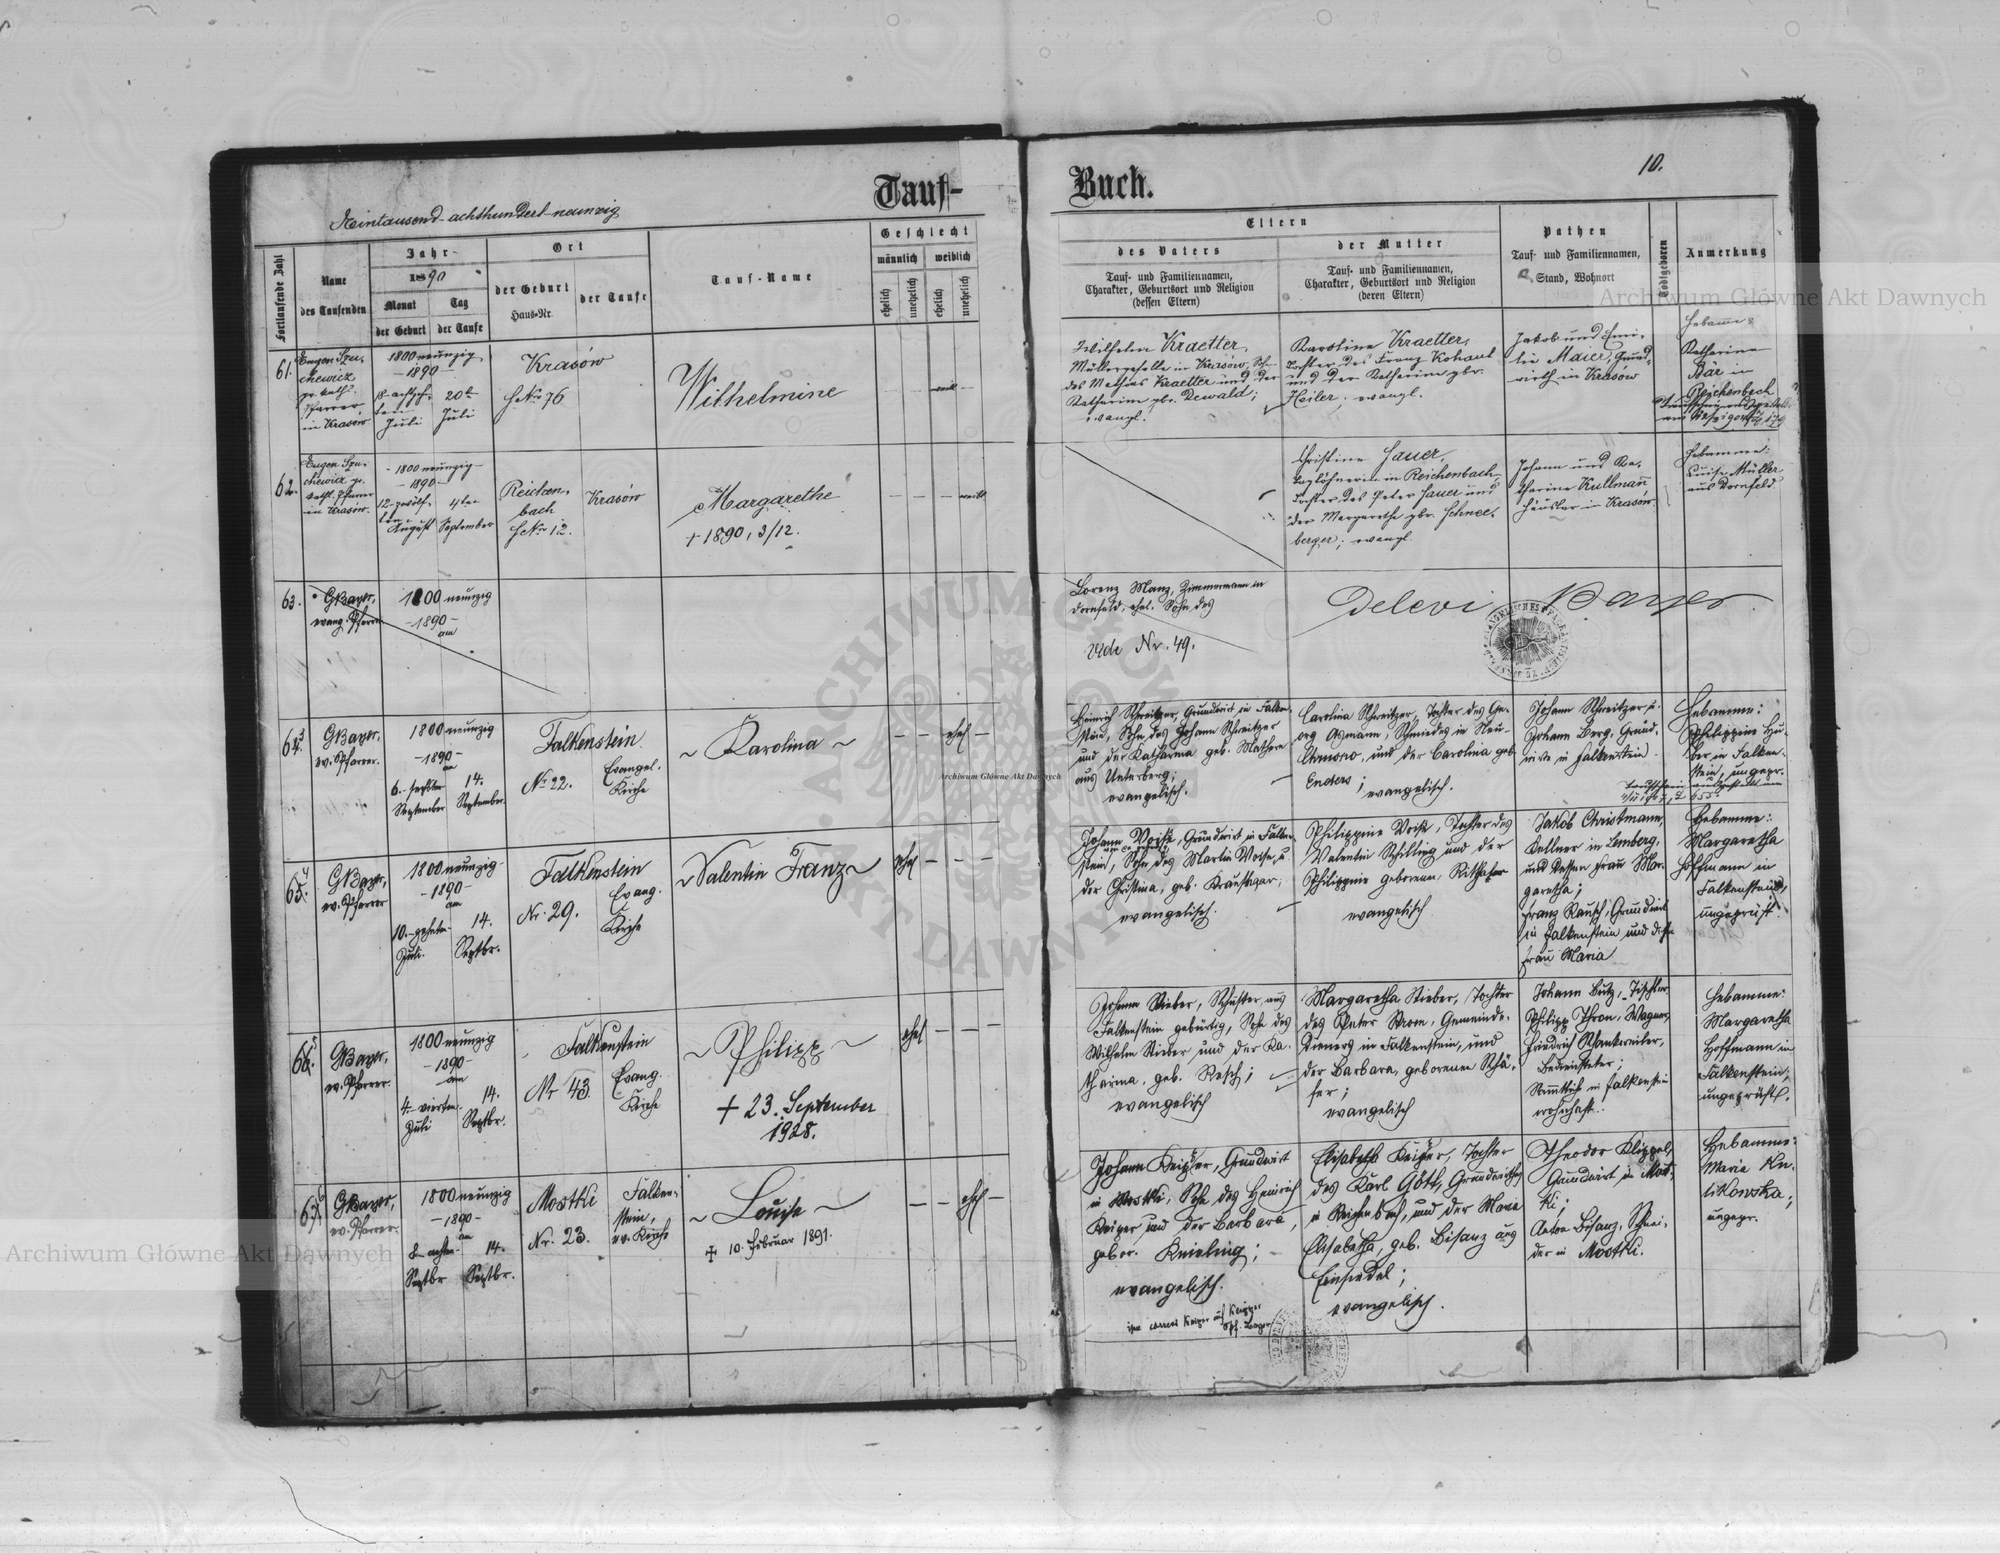 Tauf-
Buch.
10.
Eintausend-achthundert-neunzig
Fortlaufende Zahl
Name
des Taufenden
Jahr
1890
Monat
Tag
der Geburt
der Taufe
Ort
der Geburt
Haus-Nr.
der Taufe
Tauf-Name
Geschlecht
männlich
weiblich
ehelich
unehelich
ehelich
unehelich
Eltern
des Vaters
Tauf- und Familiennamen,
Charakter, Geburtsort und Religion
(dessen Eltern)
der Mutter
Tauf- und Familiennamen,
Charakter, Geburtsort und Religion
(deren Eltern)
Pathen
Tauf- und Familiennamen,
Stand, Wohnort
Todtgeboren
Anmerkung
61.
Eugen Szu-
chewicz
gr. kath.
Pfarrer
in Krasów
1800 neunzig
-1890-
20te
Juli
Juli
Krasów
HNro 76
Wilhelmine
Wilhelm Kraetter,
Müllergeselle in Krasów, Sohn
des Mathias Kraetter und der
Katharina gbr. Dewald;
evangl.
Karoline Kraetter,
Tochter des Franz Kohaut
und der Katharina gbr.
Heiler; evangl.
Jakob und Emi-
lie Maier, Grund-
wirth in Krasów
Hebame:
Katharina
Bär in
Reichenbach
62.
Eugen Szu-
chewicz gr.
kath. Pfarrer
in Krasów.
-1800 neunzig-
-1890-
12-zwölf-
ten
August
4ten
September
Reichen-
bach
HNro 12.
Krasów
Margarethe
+ 1890, 3/12.
Christine Hauer,
Taglöhnerin in Reichenbach
Tochter des Peter Hauer und
der Margarethe gbr. Schnee-
berger; evangl.
Johann und Ka-
tharina Kullmann
Häusler in Krasów.
Hebamme:
Luise Müller
aus Dornfeld.
63.
GBayer,
evang. Pfarrer
1800 neunzig
-1890-
am
Lorenz Manz, Zimmermann in
Dornfeld, ehel. Sohn des
vide Nr. 49.
Delevi Bayer
64.
GBayer,
ev. Pfarrer.
1800 neunzig
-1890-
am
6.-sechsten
September
14.
September
Falkenstein
No 22.
Evangel.
Kirche
~ Karolina ~
ehel
Heinrich Schweitzer, Grundwirt in Falken-
stein, Sohn des Johann Schweitzer
und der Katharina geb. Mathern
aus Unterberg;
evangelisch.
Carolina Schweitzer, Tochter des Ge-
org Asmann, Schmiedes in Neu-
und der Carolina geb.
Enders;
evangelisch.
Johann Schweitzer u.
Johann Berg, Grund-
wirte in Falkenstein.
Hebamme:
Philippine Hu-
ber in Falken-
stein, ungepr.
65.
GBayer,
ev. Pfarrer
1800 neunzig
-1890-
am
10.-zehnten
Juli.
14.
Septbr.
Falkenstein
Nr. 29.
Evang.
Kirche
~ Valentin Franz ~
ehel
Johann Woise, Grundwirt in Falken-
stein, Sohn des Martin Woise, u.
der Christina, geb.
evangelisch.
Philippine Woise, Tochter des
Valentin Schilling und der
Philippine geborenen Ritthaler
evangelisch
Jakob Christmann,
Kellner in Lemberg,
und dessen Frau Mar-
garetha;
Franz Rausch, Grundwirt
in Falkenstein und dessen
Frau Maria
Hebamme:
Margaretha
Hoffmann in
Falkenstein,
ungeprüft.
66.
GBayer,
ev. Pfarrer.
1800 neunzig
-1890-
am
4.-vierten-
Juli
14.
Septbr.
Falkenstein
Nr 43.
Evang.
Kirche
~ Philipp ~
+ 23. September
1928.
ehel
Johann Stieber, Schuster aus
Falkenstein gebürtig, Sohn des
Wilhelm Stieber und der Ka-
tharina, geb. Resch;
evangelisch
Margaretha Stieber, Tochter
des Peter Thron, Gemeinde-
dieners in Falkenstein, und
der Barbara, geborenen Schä-
fer;
evangelisch
Johann Butz, Tischler
Philipp Thron, Wagner,
Friedrich Schankweiler,
Bediensteter;
Sämmtlich in Falkenstein
wohnhaft.
Hebamme:
Margaretha
Hoffmann in
Falkenstein;
ungeprüft.
67.
GBayer,
ev. Pfarrer.
1800 neunzig
-1890-
am
8-achten-
Septbr
14.
Septbr.
Mostki
Nr. 23.
Falken-
stein,
ev. Kirche
~ Louise ~
+ 10. Februar 1891.
ehel
Johann Keiper, Grundwirt
in Mostki, Sohn des Heinrich
Keiper und der Barbara,
gebor. Knieling;
evangelisch.
Elisabeth Keiper, Tochter
des Karl Gött, Grundwirthes
in Reichenbach, und der Maria
Elisabetha, geb. Bisanz aus
Einsiedel;
evangelisch.
Theodor Klippel,
Grundwirt in Most-
ki;
Bisanz, Schnei-
der in Mostki.
Hebamme:
Maria Ku-
likowska;
ungepr.
Archiwum Główne Akt Dawnych
Archiwum Główne Akt Dawnych
Archiwum Główne Akt Dawnych